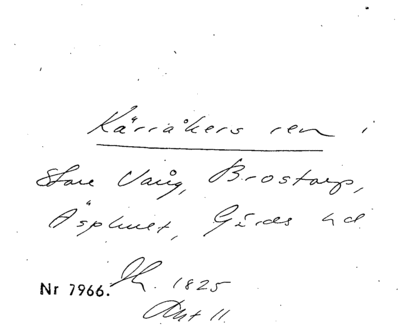 Kärråkers ren i
Stora Vång, Brostorp,
Äsphult, Gärds hd
Nr 7966. 1825
Akt 11.